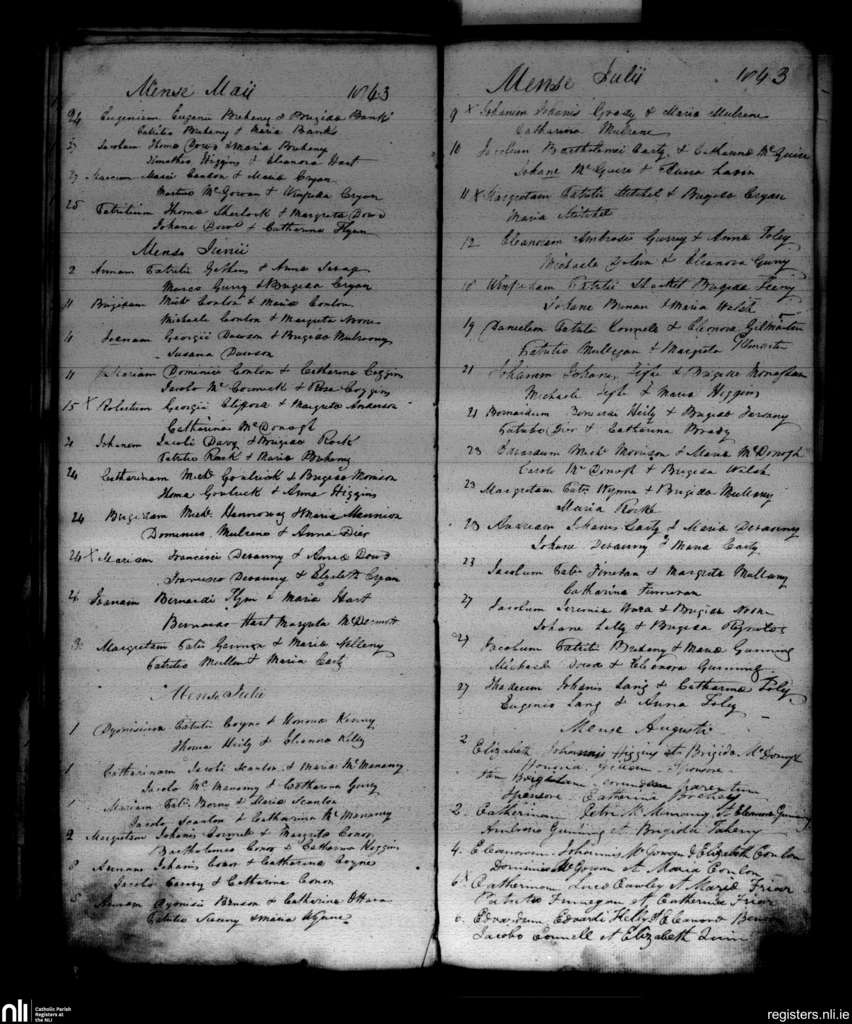 Mense Maii 1843
24 Eugenium Eugenii Bruheny & Brigida Banks
Patritio Bruheny & Maria Banks
Jacobum Thoma & Maria Bruheny
Timotheo Higgins & Eleanora Hart
Marcum Marci Conlon & Maria Cryan
Martino Mc Gowan & Winifrida Cryan
25 Patritium Thoma Sherlock & Margreta Dowd
Johane Dowd & Catherina Flynn
Mense Junii
2 Annam Patritii & Anna
Marco Gurry & Brigida Cryan
11 Brigidam Michl Conlon & Maria Conlon
Michaele Conlon & Margreta Noone
11 Joanam Georgii Dawson & Brigida Mulroony
Susana Dawson
11 Mariam Dominici Conlon & Catherina Coggins
Jacobo Mc Cormick & Rosa Coggins
15 X Robertum Georgii Clifford & Margreta Anderson
Catharina McDonogh
Johanem Jacobi Davy & Brigida Rock
Patritio Rock & Maria Bruheny
24 Catharinam Michl Goulrick & Brigida Morrison
Thoma Goulrick & Anna Higgins
24 Brigidam Michl & Maria Mannion
Dominico Mulrene & Anna Dier
24 X Mariam Francisci Devanny & Anna Dowd
Francisco Devanny & Elizabeth Cryan
Joanam Bernardi Flyn & Maria Hart
Bernardo Hart Margreta McDermott
Margretam Patri & Maria
Patritio & Maria Carty
Mense Julii
1 Dyonisium Patritii Coyne & Honora Kenny
Thoma Heily & Elianora Kelly
1 Catharinam Jacobi Scanlon & Maria McManamy
Jacobo McManamy & Catharina Gurry
1 Mariam Patri & Maria Scanlon
Jacobo Scanlon & Catharina McManamy
2 Margretam Johanis & Margreta Conor
Bartholomeo Conor & Catharina Higgins
Annam Johanis Conor & Catharina Coyne
Jacobo & Catharina Conor
5 Annam Dyonisii Benson & Catharina O'Hara
Patritio & Maria Wynne
Mense Julii 1843
9 X Johanem Johanis Grady & Maria Mulrene
Catharina Mulrene
10 Jacobum Bartholomei Carty & Catharina McGuire
Johane McGuire & Lavin
11 X Margretam Patritii & Brigida Cryan
Maria
12 Eleanoram Ambrosii Gurrey & Anna Foley
Michaele & Eleanora Gurry
Winifridam Patritii & Brigida Feeny
Johane & Maria Walsh
19 Danielem Patritii Connele & Elionora Gilmartin
Patritio Mulligan & Margreta Gilmartin
21 Johanem Johanis Tighe & Brigida Monaghan
Michaele Tighe & Maria Higgins
21 Bernardum Heily & Brigida
Patritio Dier & Catharina Brady
23 Edwardum Michl Morrison & Maria McDonogh
McDonogh & Brigida Walsh
23 Margretam Patri Wynne & Brigida Mullany
Maria Rocke
23 Andream Johanis Carty & Maria Devanney
Johane Devanny & Maria Carty
23 Jacobum Patri Fineran & Margreta Mullany
Catharina Finneran
27 Jacobum Jeremia & Brigida Noone
Johane & Brigida Reynolds
27 Jacobum Patritii Bruheny & Maria Gunning
Michaele & Elianora Gunning
27 Thadeum Johanis Lang & Catharina Foley
Eugenio Lang & Anna Foley
Mense Augusti
2 Elizabeth Johannis Higgins et Brigida McDonogh
Honoria Sponsore
parentum
Sponsore Catherina
2. Catherinam Petri McManamy et Eleanora Gunning
Ambrosio Gunning et Brigida Taheny
4. Eleanoram Johannis McGowan & Elizabeth Conlon
Dominico McGowan et Maria Conlon
6. Catherinam Cawley et Maria Friar
Patritio Finnegan et Catherina Friar
6. Edvardum Edvardi Heily & Eleanora
Jacobo Connell et Elizabeth Quin
nli
Catholic Parish
Registers at
the NLI
registers.nli.ie